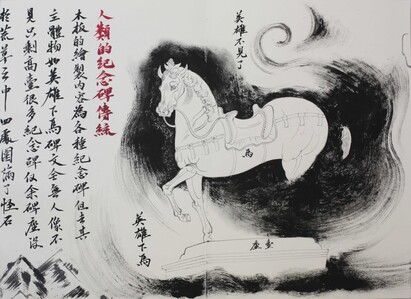 人類的紀念碑傳統
本板的繪製內容為各種紀念碑但去其
主體物如英雄下馬碑文全無人像不
見只剩高臺很多紀念碑仅余碑座没
於荒草之中 四處围满了怪石
英雄不見了
馬
英雄下馬
臺座